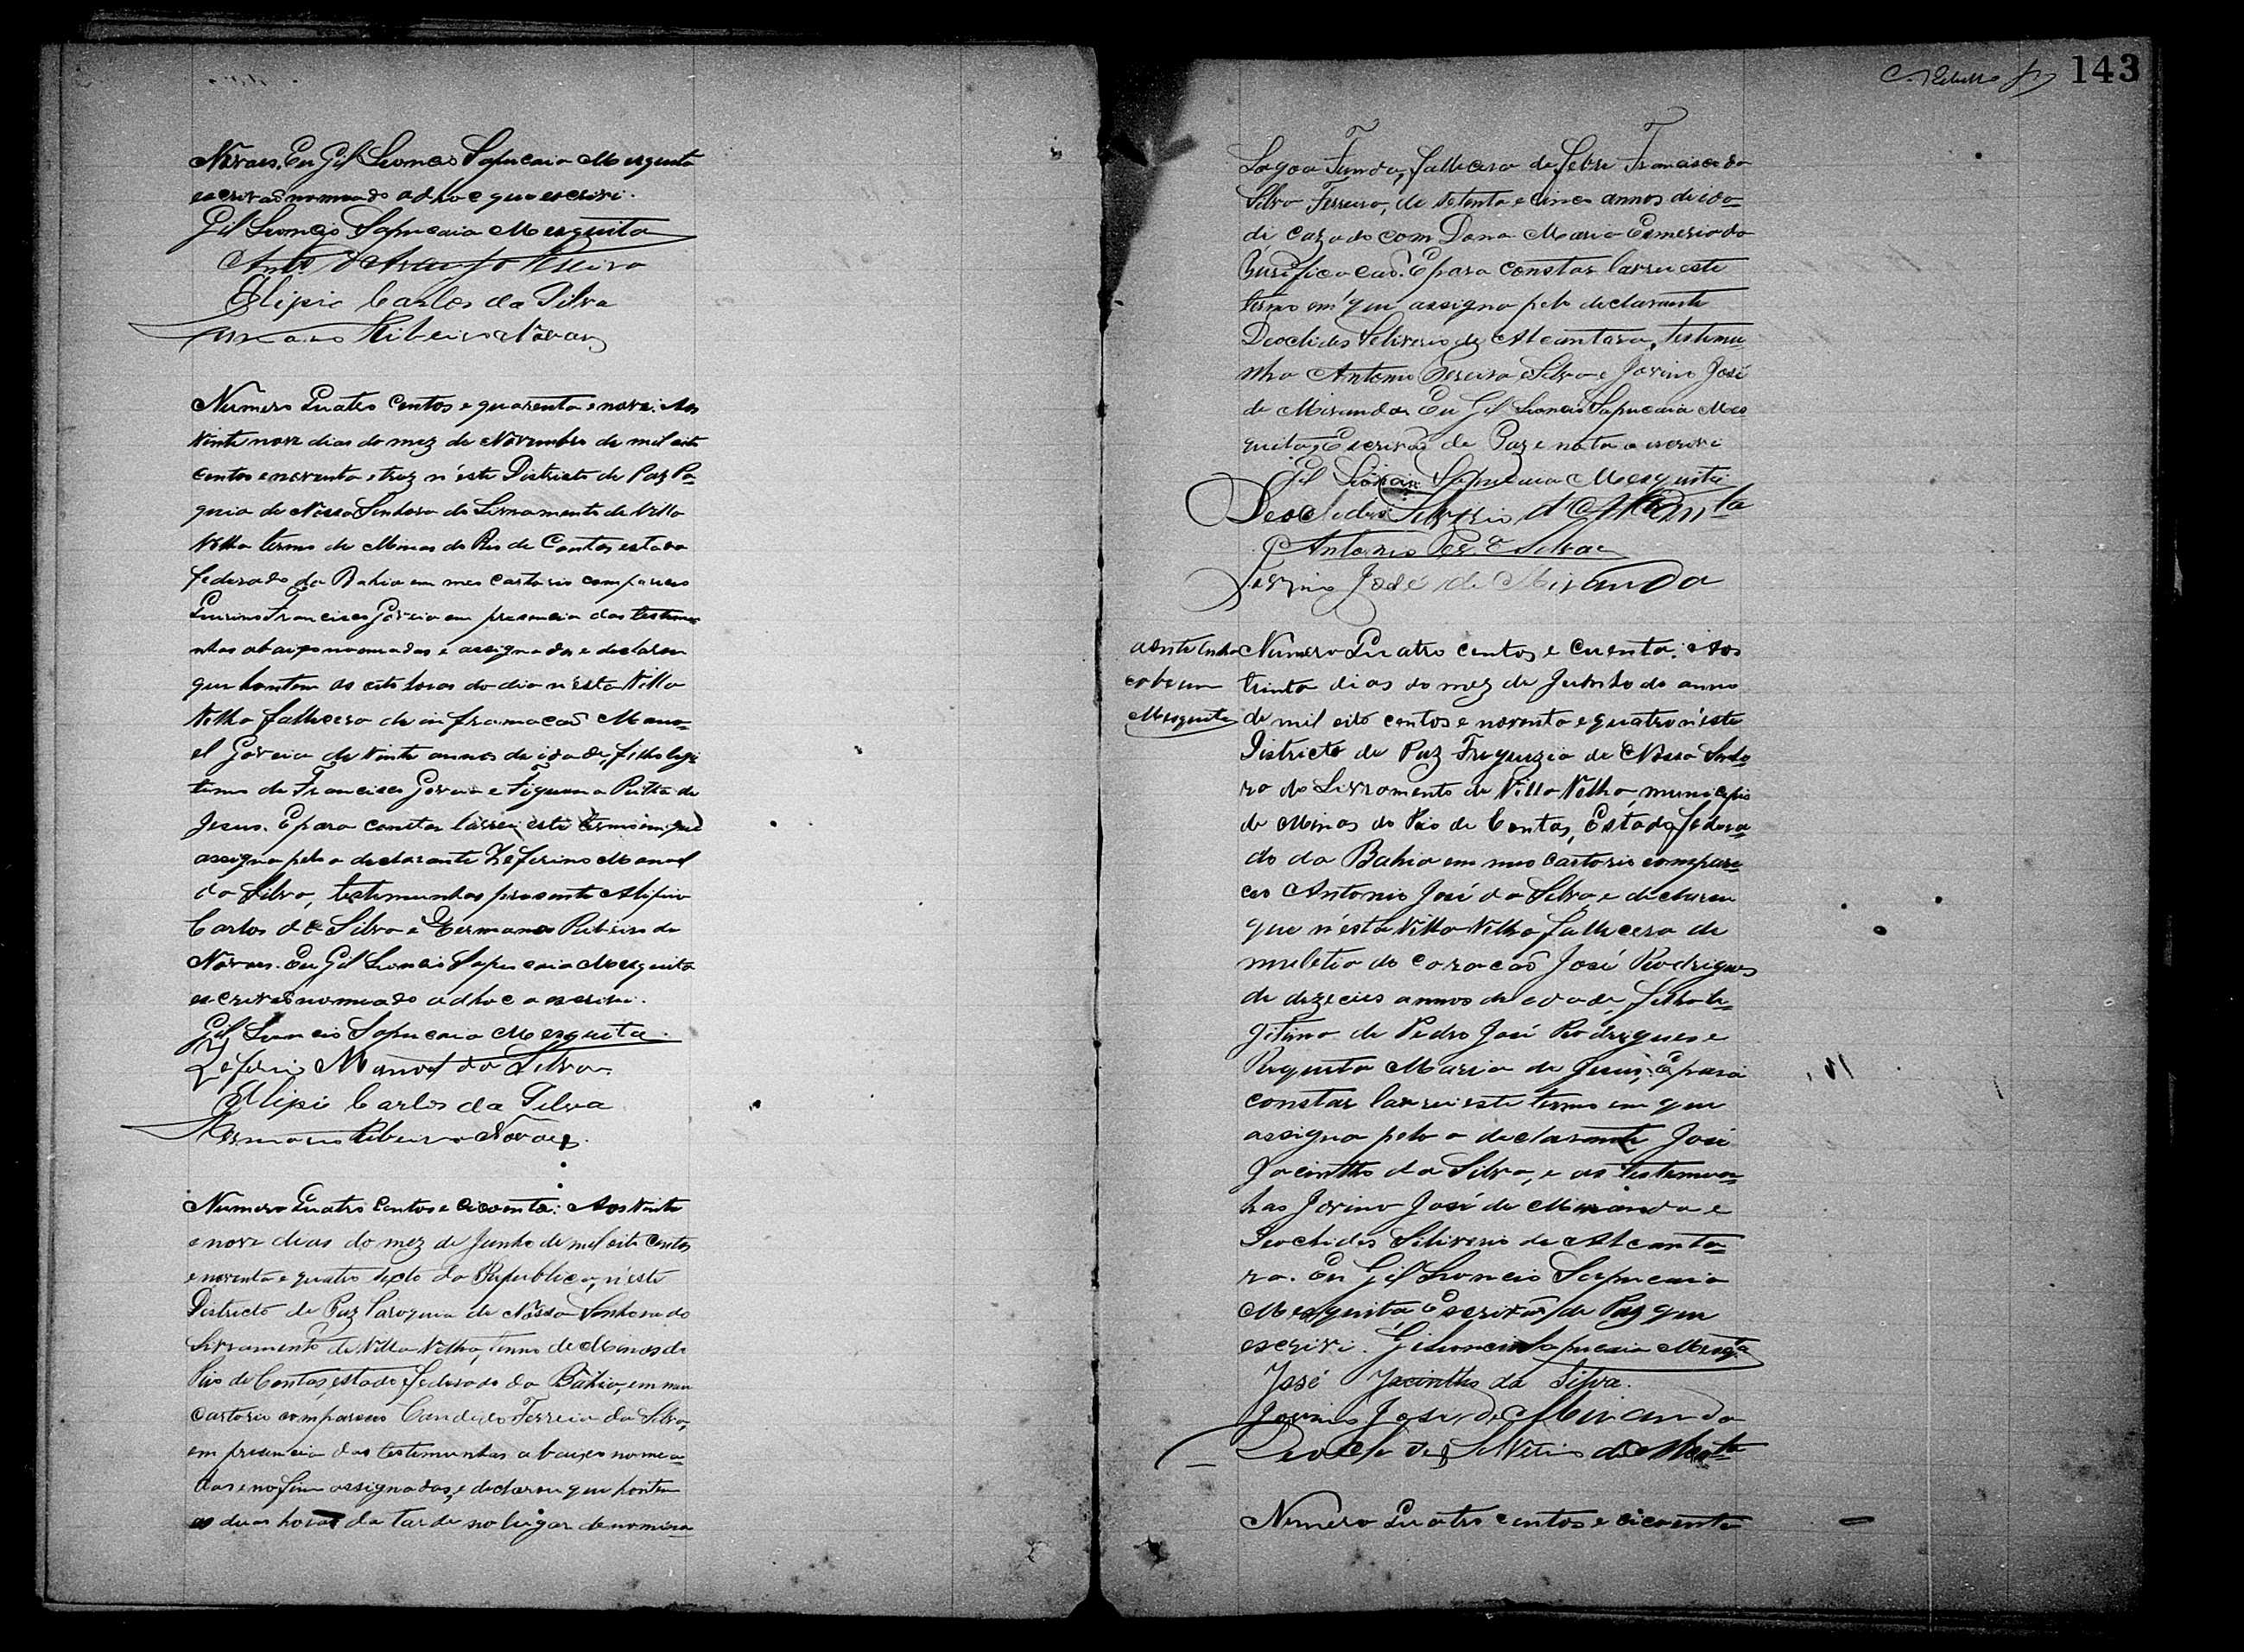 Novaes. Eu Gil Leoncio Sapucaia Mesquita
escrivaõ nomeado adhoc que escrivi.
Gil Leoncio Sapucaia Mesquita
Antº d'Araujo
Elipio Carlos da Silva
Ribeiro Novaes
Numero Quatro Centos e quarenta e nove: Aos
Vinte nove dias do mez de Novembro de mil oito
centos e noventa e trez n'este Districto de Paz Pa-
quia de Nossa Senhora do Livramento de Villa
Velha termo de Minas do Rio de Contas estado
federado da Bahia em meo cartorio compareceo
Quirino Francisco Garcia em presencia das testemu
nhas abaixo nomeadas e assignadas e declarou
que hontem as oito horas do dia n'esta Villa
Velha fallecera de inframacaõ Mano-
el Garcia de Vinte annos de idade, filho legi
timo de Francisco Garcia e de
Jesus. E para constar lavrei este termo em que
assigna pelo o declarante Zeferino Manoel
da Silva, testemunhas presente Alipio
Carlos da Silva e Germano Ribeiro de
Novaes. Eu Gil Leoncio Sapucaia Mesquita
escrivaõ nomeado adhoc o escrivi.
Gil Leoncio Sapucaia Mesquita
Zeferino Manoel da Silva
Elipio Carlos da Silva
Germano Ribeiro Novaes.
Numero Quatro Centos e cicoenta: Aos Vinte
e nove dias do mez de Junho de mil oito centos
e noventa e quatro sexto da Republica, n'este
Districto de Paz Paroquia de Nossa Senhora do
Livramento de Villa Velha, termo de Minas do
Rio de Contas, estado federado da Bahia, em meu
cartorio compareceo Candido Ferreira da Silva,
em presencia das testemunhas abaixo nomea-
das e no fim assignadas, e declarou que hontem
as duas horas da tarde no lugar denomina
143
Lagoa Funda, fallecera de febre Francisco da
Silva Ferreira, de setenta e cinco annos de ida-
di cazado com Dona Maria Esmeria da
Purificacaõ. E para constar lavrei este
termo em que assigna pelo declarante
Deoclides Silverio de Alcantara, testemu
nha Antonio Pereira e Silva e Jovino José
de Miranda. Eu Gil Leoncio Sapucaia Mes
quita, Escrivaõ de Paz e nota o escrivi
Gil Leoncio Sapucaia Mesquita
Deoclides Silverio d'Alcanta
Antonio Per.ª e Silva
Jovino José de Miranda
Mesquita
Numero Quatro centos e cuenta: Aos
trinta dias do mez de Junho do anno
de mil oito centos e noventa e quatro n'este
Districto de Paz Freguezia de Nossa Senho-
ra do Livramento de Villa Velha, municipio
de Minas do Rio de Contas, Estado federa-
do da Bahia em meo cartorio compare-
ceo Antonio José da Silva, e declarou
que n'esta Villa Velha fallecera de
muletia do coracaõ José Rodrigues
de dezeceis annos de edade, filho le-
gitimo de Pedro José Rodrigues e
Maria de Jesus, E para
constar lavrei este termo em que
assigna pelo o declarante José
Jacintho da Silva, e as testemun-
has Jovino José de Miranda e
Deoclides Silverio de Alcanta-
ra. Eu Gil Leoncio Sapucaia
Mesquita, Escrivaõ de Paz que
escrivi. Gil Leoncio Sapucaia Mesqta
José Jacintho da Silva.
Jovino José de Miranda
Deoclides Silverio de
Numero Quatro centos e cicoenta